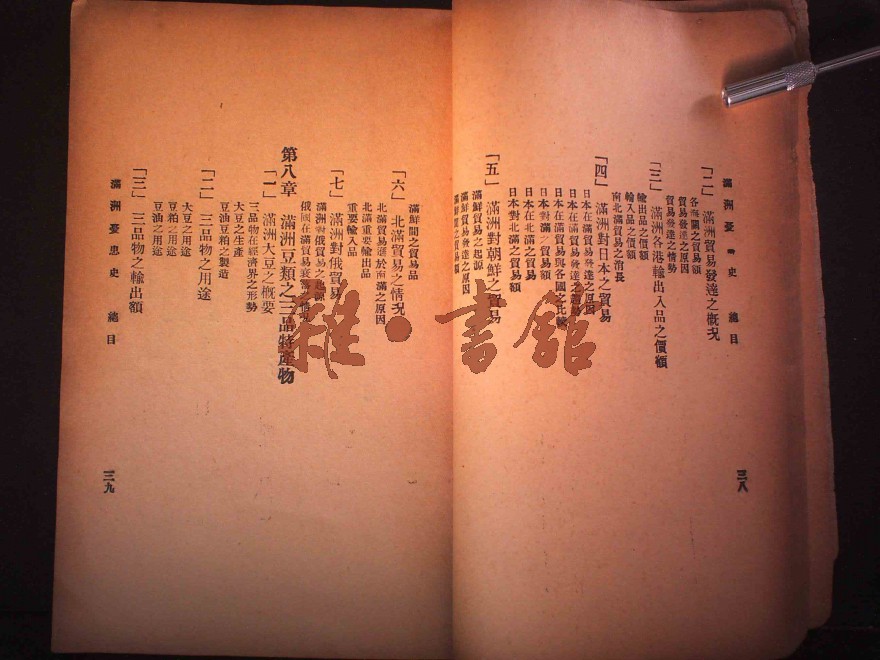 滿洲憂 史 總目
「二」 滿洲貿易發達之槪况
各 關之貿易額
貿易發達之原因
貿易發達之情勢
「三」 滿洲各港輸出入品之價額
輸出品之價額
輸入品之價額
南北滿貿易之消長
「四」 滿洲對日本之貿易
日本在滿貿易發達之原因
日本在滿貿易發達之趨勢
日本在滿貿易與各國之比較
日本對滿之貿易額
日本在北滿之貿易
日本對北滿之貿易額
「五」 滿洲對朝鮮之貿易
滿鮮貿易之起源
滿鮮貿易發達之原因
滿鮮間之貿易額
三八
滿鮮間之貿易品
「六」 北滿貿易之情况
北滿貿易 於南滿之原因
北滿重要輸出品
重要輸入品
「七」 滿洲對俄貿易
滿洲對俄貿易之起源
俄國在滿貿易衰落之情况
第八章 滿洲豆類之三品特產物
「一」 滿洲大豆之槪要
三品物在經濟界之形勢
大豆之生產
豆油豆粕之製造
「二」 三品物之用途
大豆之用途
豆粕之用途
豆油之用途
「三」 三品物之輸出額
滿洲憂患史 總目
三九
雜·書館